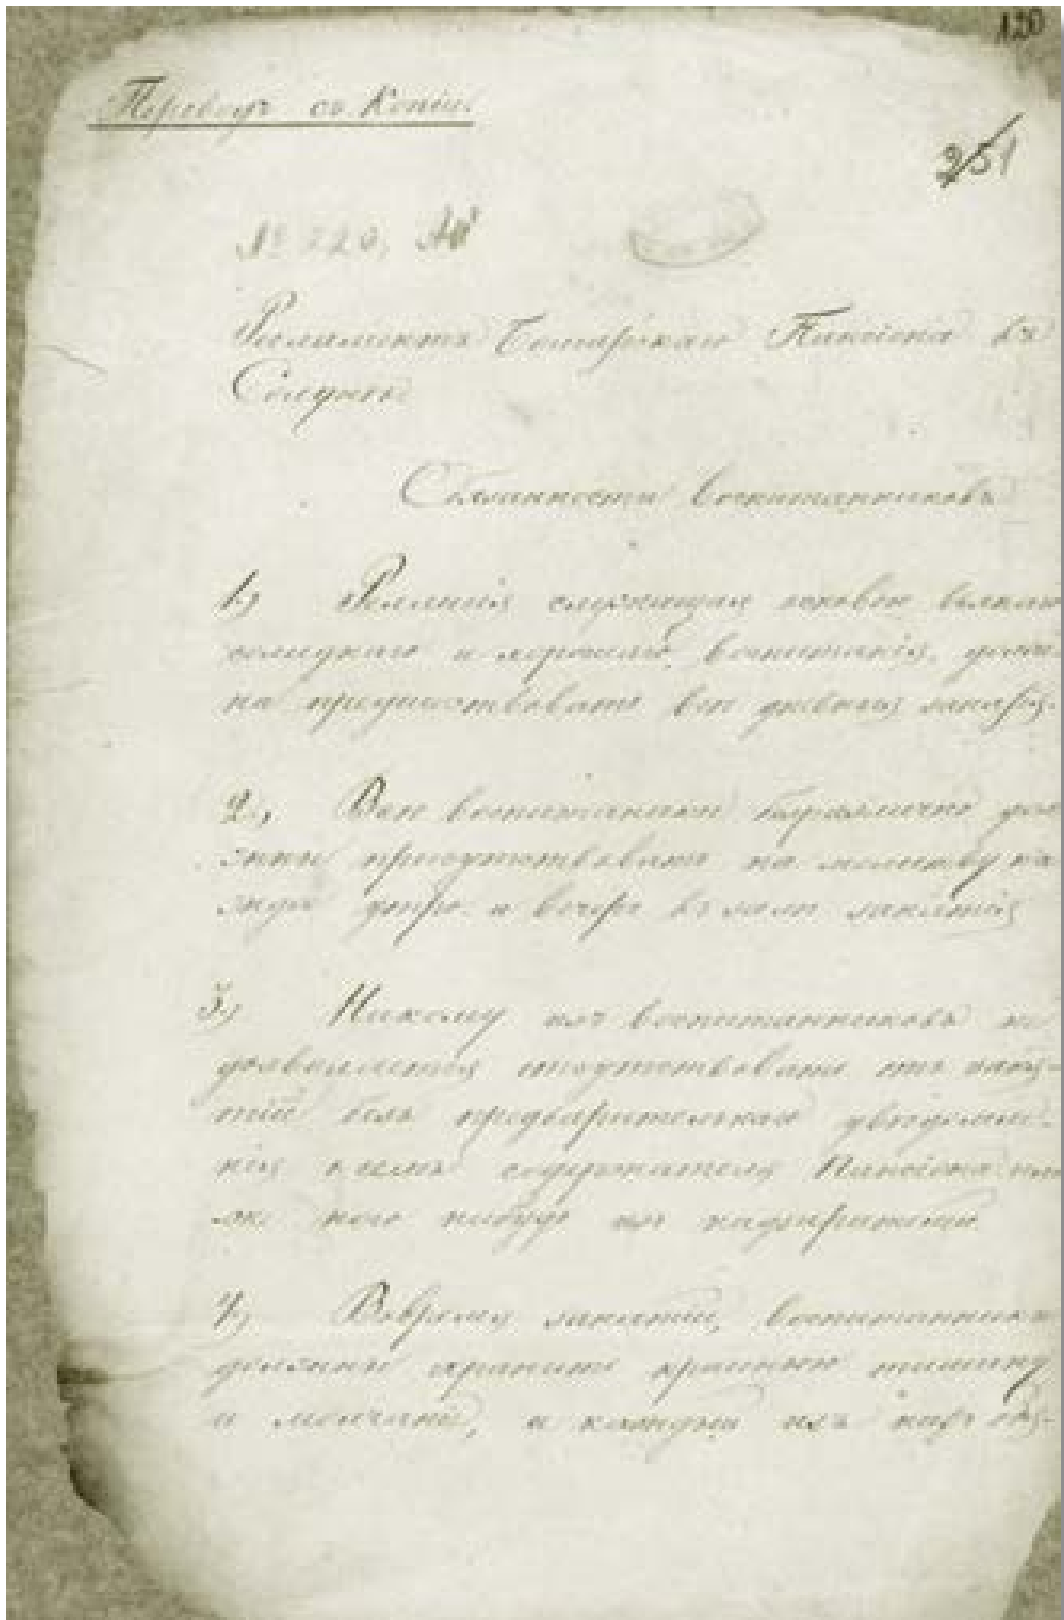 120
Переводъ съ Копіи.
251
№ 120,
Регламентъ Болгарскаго Пансіона въ
Солунѣ
Обязанности воспитанниковъ
1) Религія служащая основою всякаго
солиднаго и хорошаго воспитанія, долж
на предшествовать все дневныя занятія.
2., Все воспитанники безразлично дол
жны присутствовать на молитву ка
ждое утро и вечеръ въ залѣ занятія
3, Никому изъ воспитанниковъ не
дозваляется отсутствовать отъ заня-
тій безъ предварительнаго увѣдомле-
нія о семъ содержателя Пансіона или
же кого нибудь изъ надзирателей
4, Вовремя занятій, воспитанники
должны хранить крайнею тишину
и молчаніе, и каждый изъ нихъ обя-